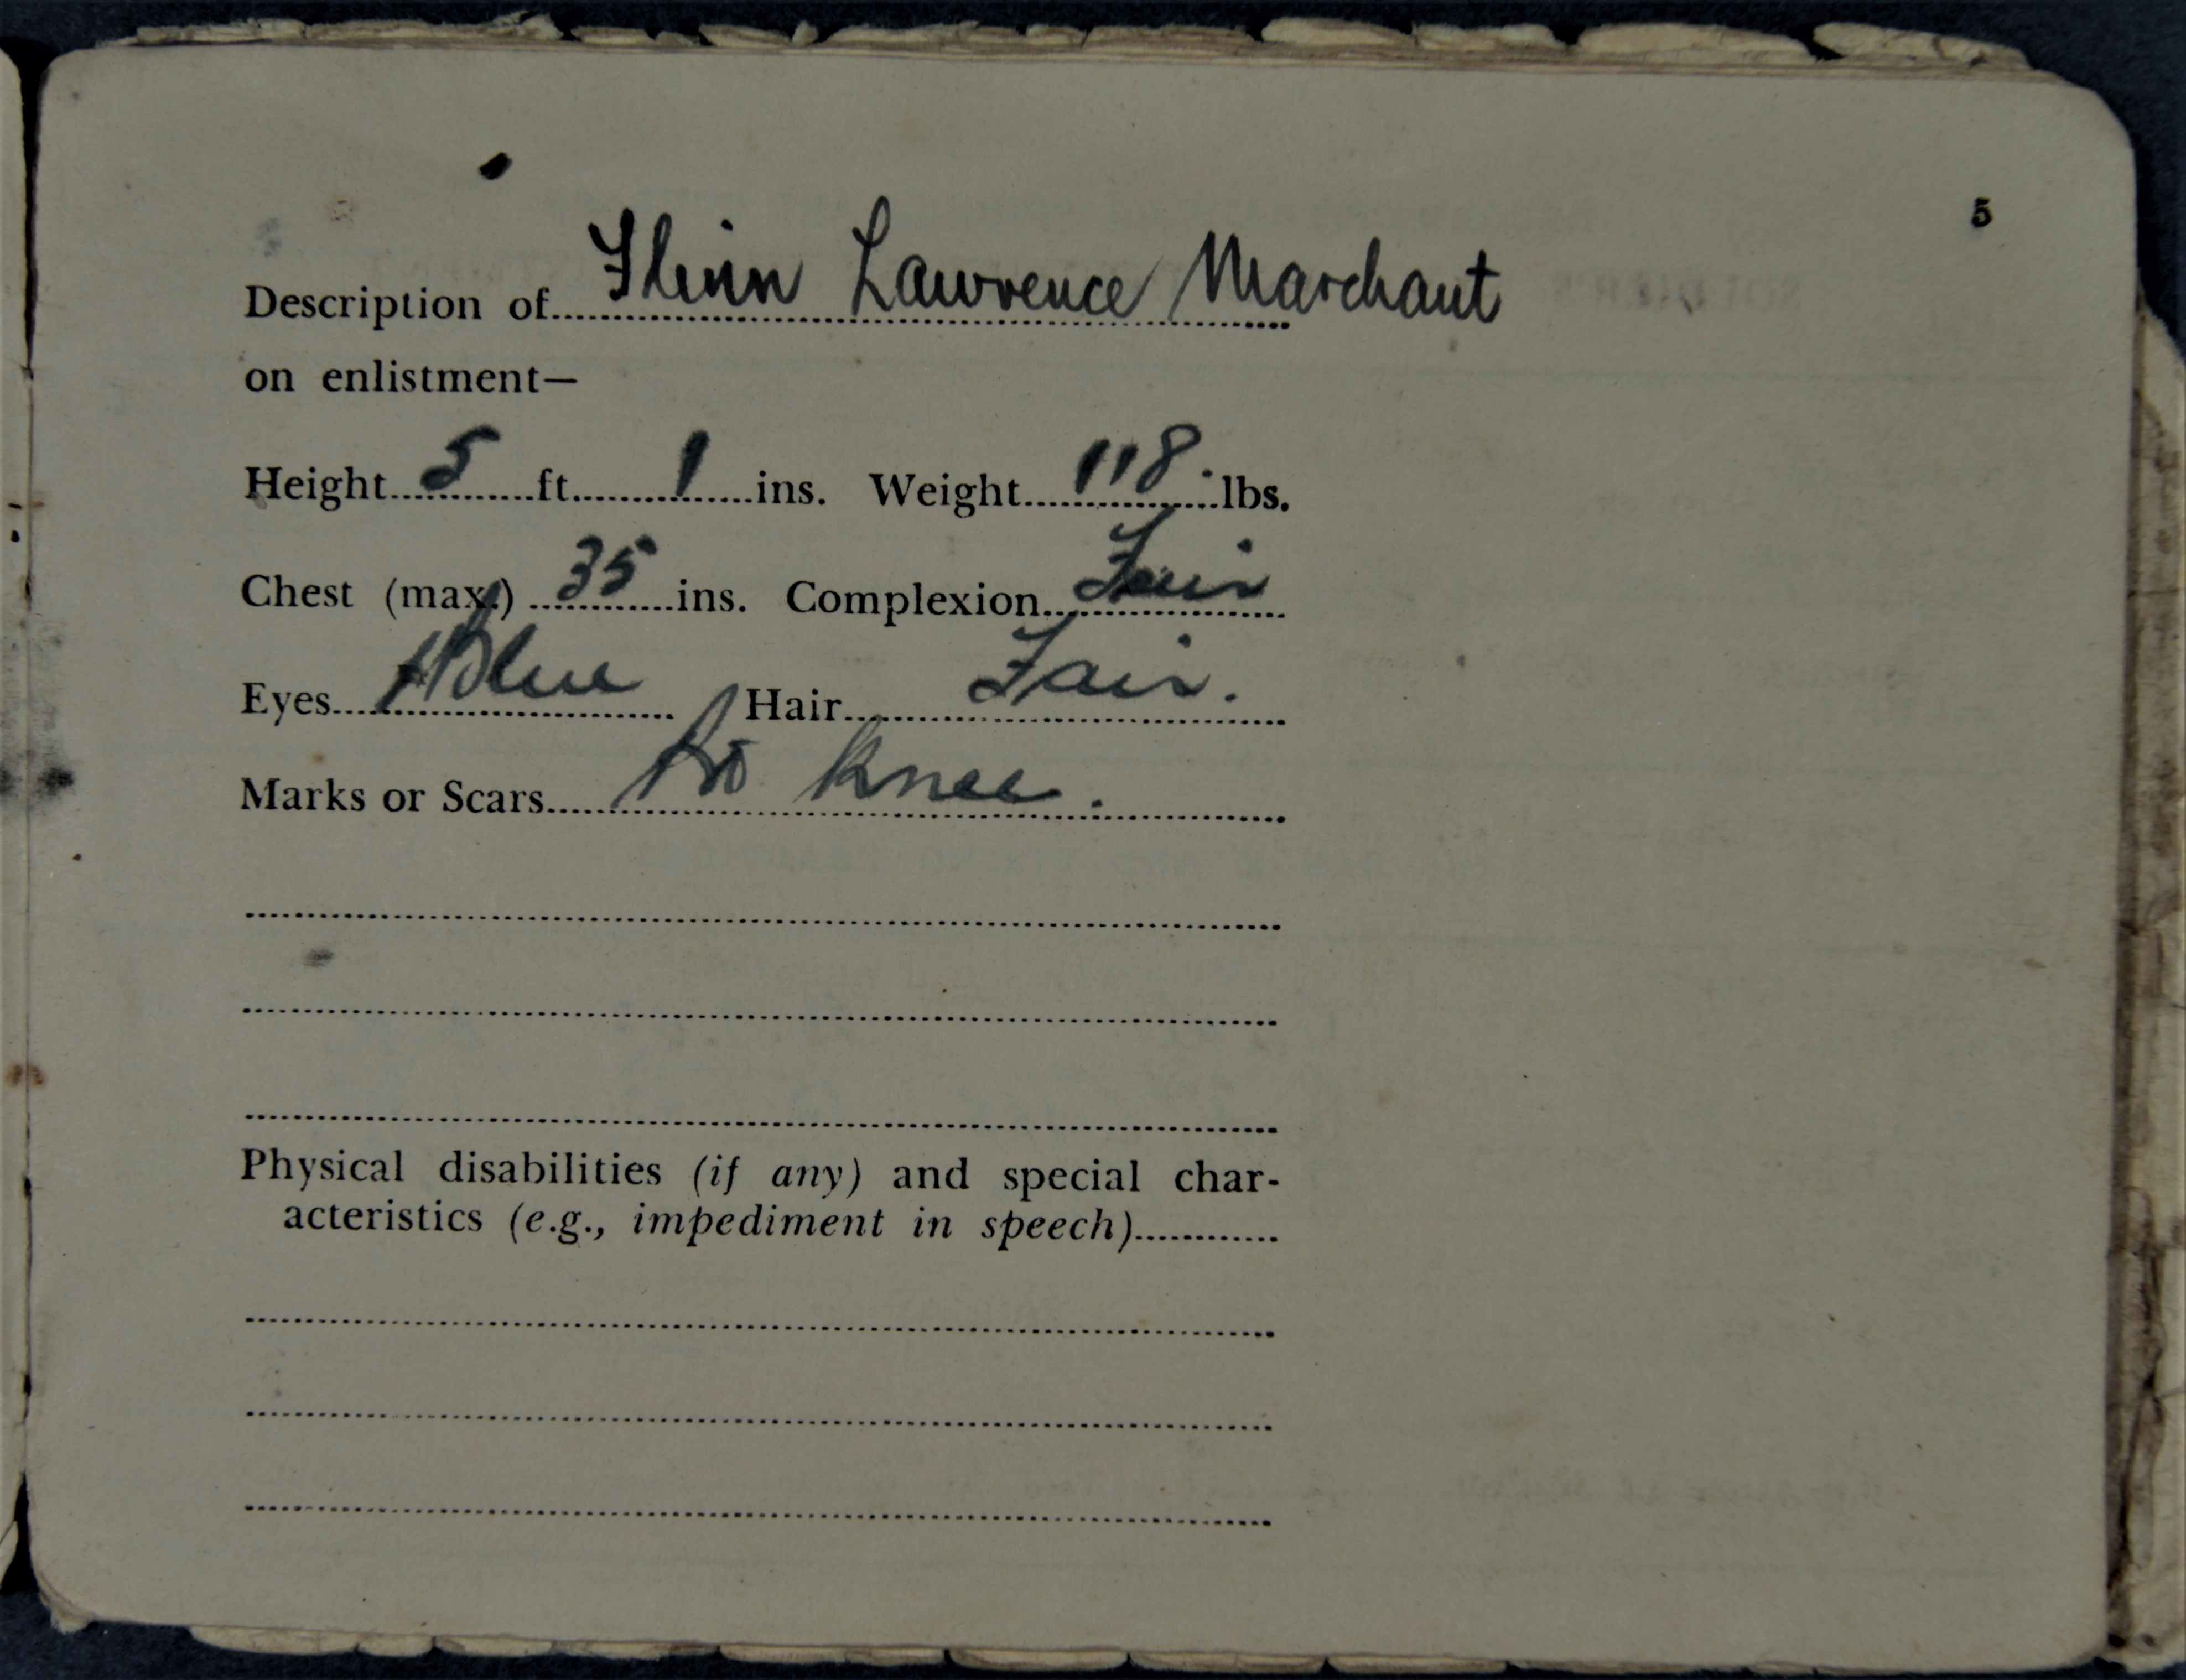 5
Description of Flinn Lawrence Marchant
on enlistment—
Height 5 ft. 1 ins. Weight 118 lbs.
Chest (max.) 35 ins. Complexion Fair
Eyes Blue Hair Fair.
Marks or Scars knee.
Physical disabilities (if any) and special char-
acteristics (e.g., impediment in speech)